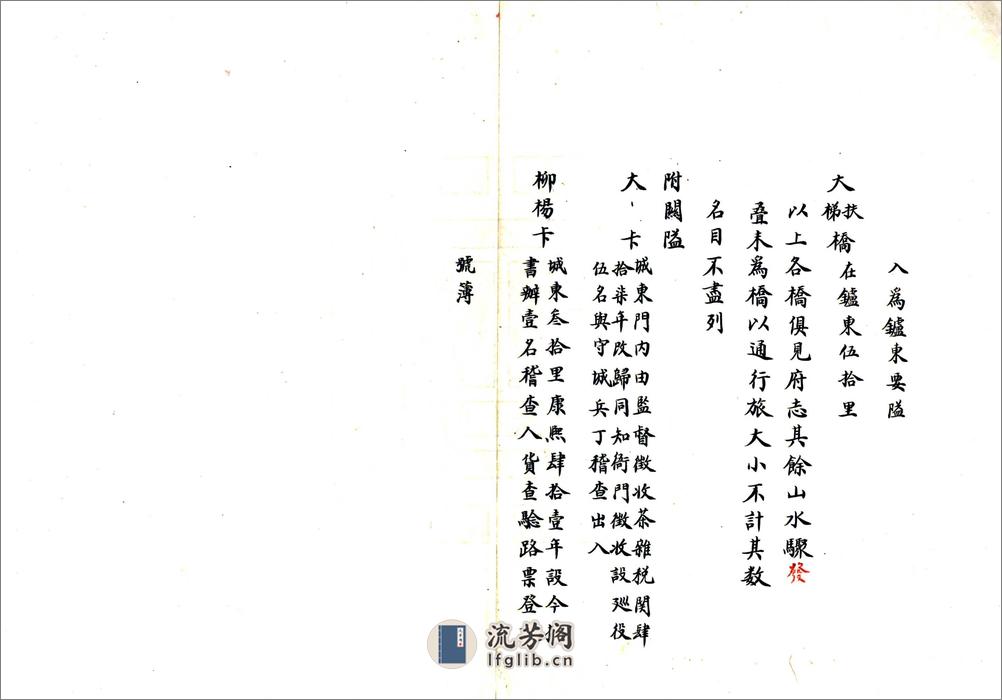 入為鑪東要隘
大扶梯橋在鑪東伍拾里
以上各橋俱見府志其餘山水驟發
疊木為橋以通行旅大小不計其数
名目不盡列
附關隘
大、卡城東門内由監督徵收茶雜税関肆
拾柒年改歸同知衙門徵收設廵役
伍名與守城兵丁稽查出入
柳楊卡城東叁拾里康熙肆拾壹年設今
書辦壹名稽查人貨查驗路票登
號簿
流芳阁
lfglib.cn